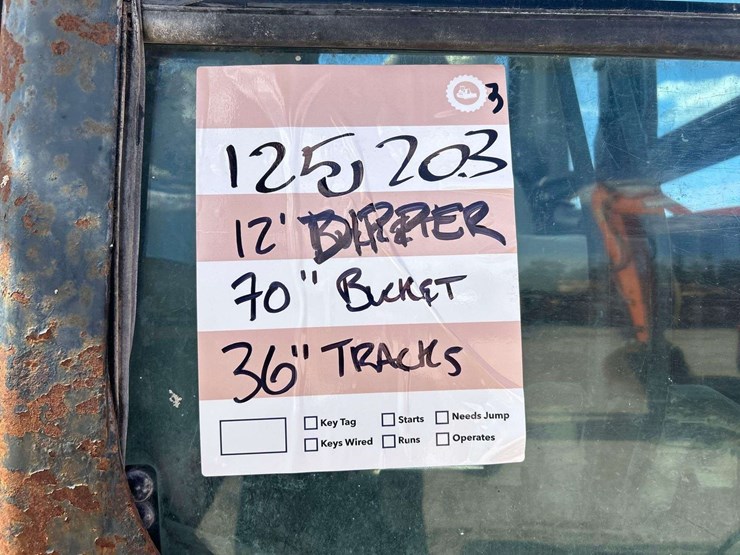 3
125,203
12' DIPPER
70" BUCKET
36" TRACKS
Key Tag Starts Needs Jump
Keys Wired Runs Operates